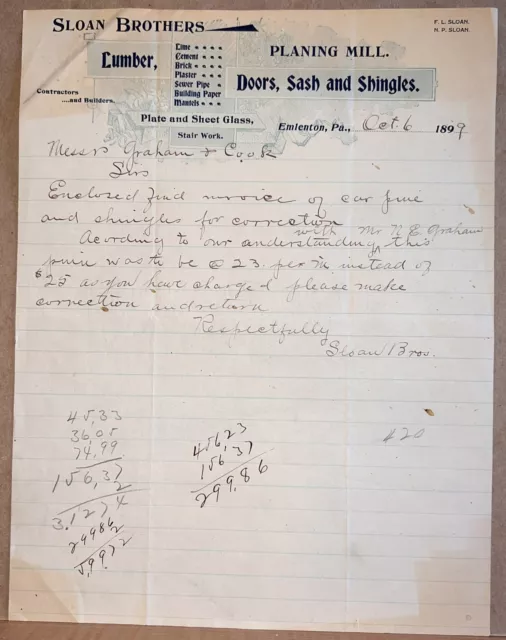 Sloan Brothers
F. L. SLOAN.
N. P. SLOAN.
Lumber,
Lime
Cement
Brick
Plaster
Sewer Pipe
Building Paper
Mantels
PLANING MILL.
Doors, Sash and Shingles.
Contractors
....and Builders,
Plate and Sheet Glass,
Stair Work.
Emlenton, Pa., Oct. 6 1899
Messrs Graham & Cook
Sirs
Enclosed find invoice of car pine
and shingles for correction
with Mr N. E. Graham
Acording to our understanding this
pine was to be @ 23. per M instead of
$25 as you have charged please make
correction and return
Respectfully
Sloan Bros.
45,33
36,05
74,99
156,37
2
3.1274
29986
2
5,9972
456,23
156,37
299.86
$20